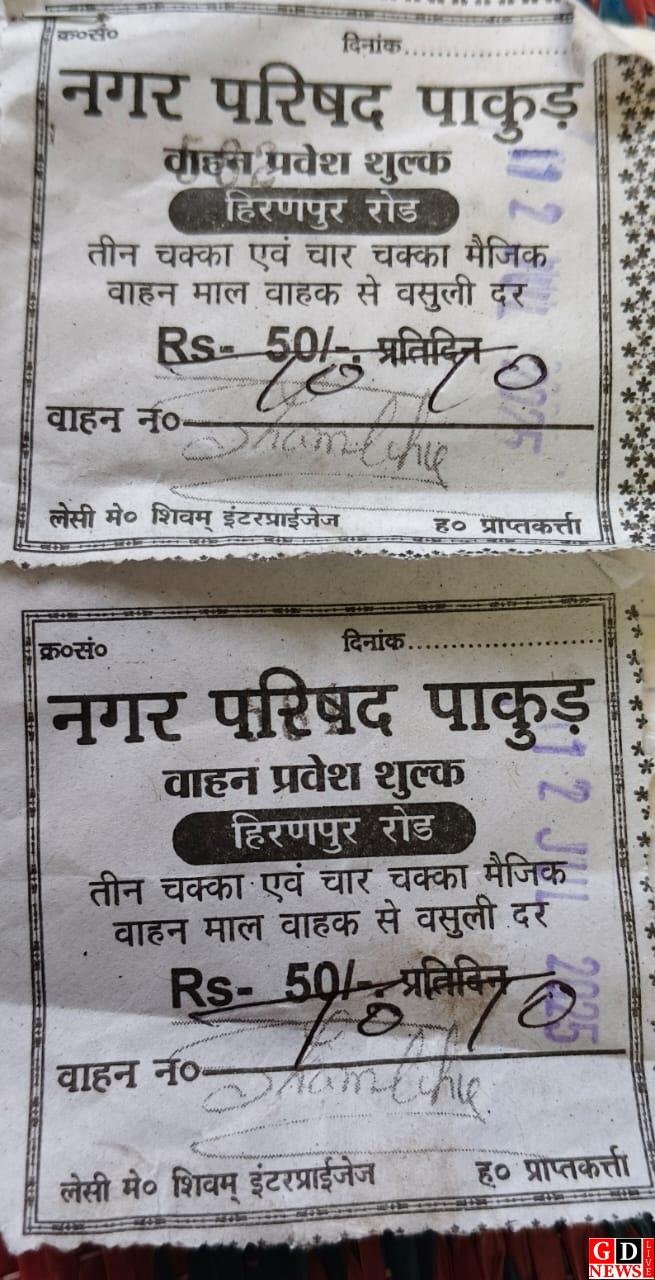 क्र०सं० दिनांक....................
नगर परिषद पाकुड़
वाहन प्रवेश शुल्क
हिरणपुर रोड
तीन चक्का एवं चार चक्का मैजिक
वाहन माल वाहक से वसुली दर
Rs- 50/-. प्रतिदिन
वाहन न०
लेसी मे० शिवम् इंटरप्राईजेज ह० प्राप्तकर्त्ता
12 JUL 2025
क्र०सं० दिनांक....................
नगर परिषद पाकुड़
वाहन प्रवेश शुल्क
हिरणपुर रोड
तीन चक्का एवं चार चक्का मैजिक
वाहन माल वाहक से वसुली दर
Rs- 50/-. प्रतिदिन
वाहन न०
लेसी मे० शिवम् इंटरप्राईजेज ह० प्राप्तकर्त्ता
12 JUL 2025
GD
NEWS
LIVE